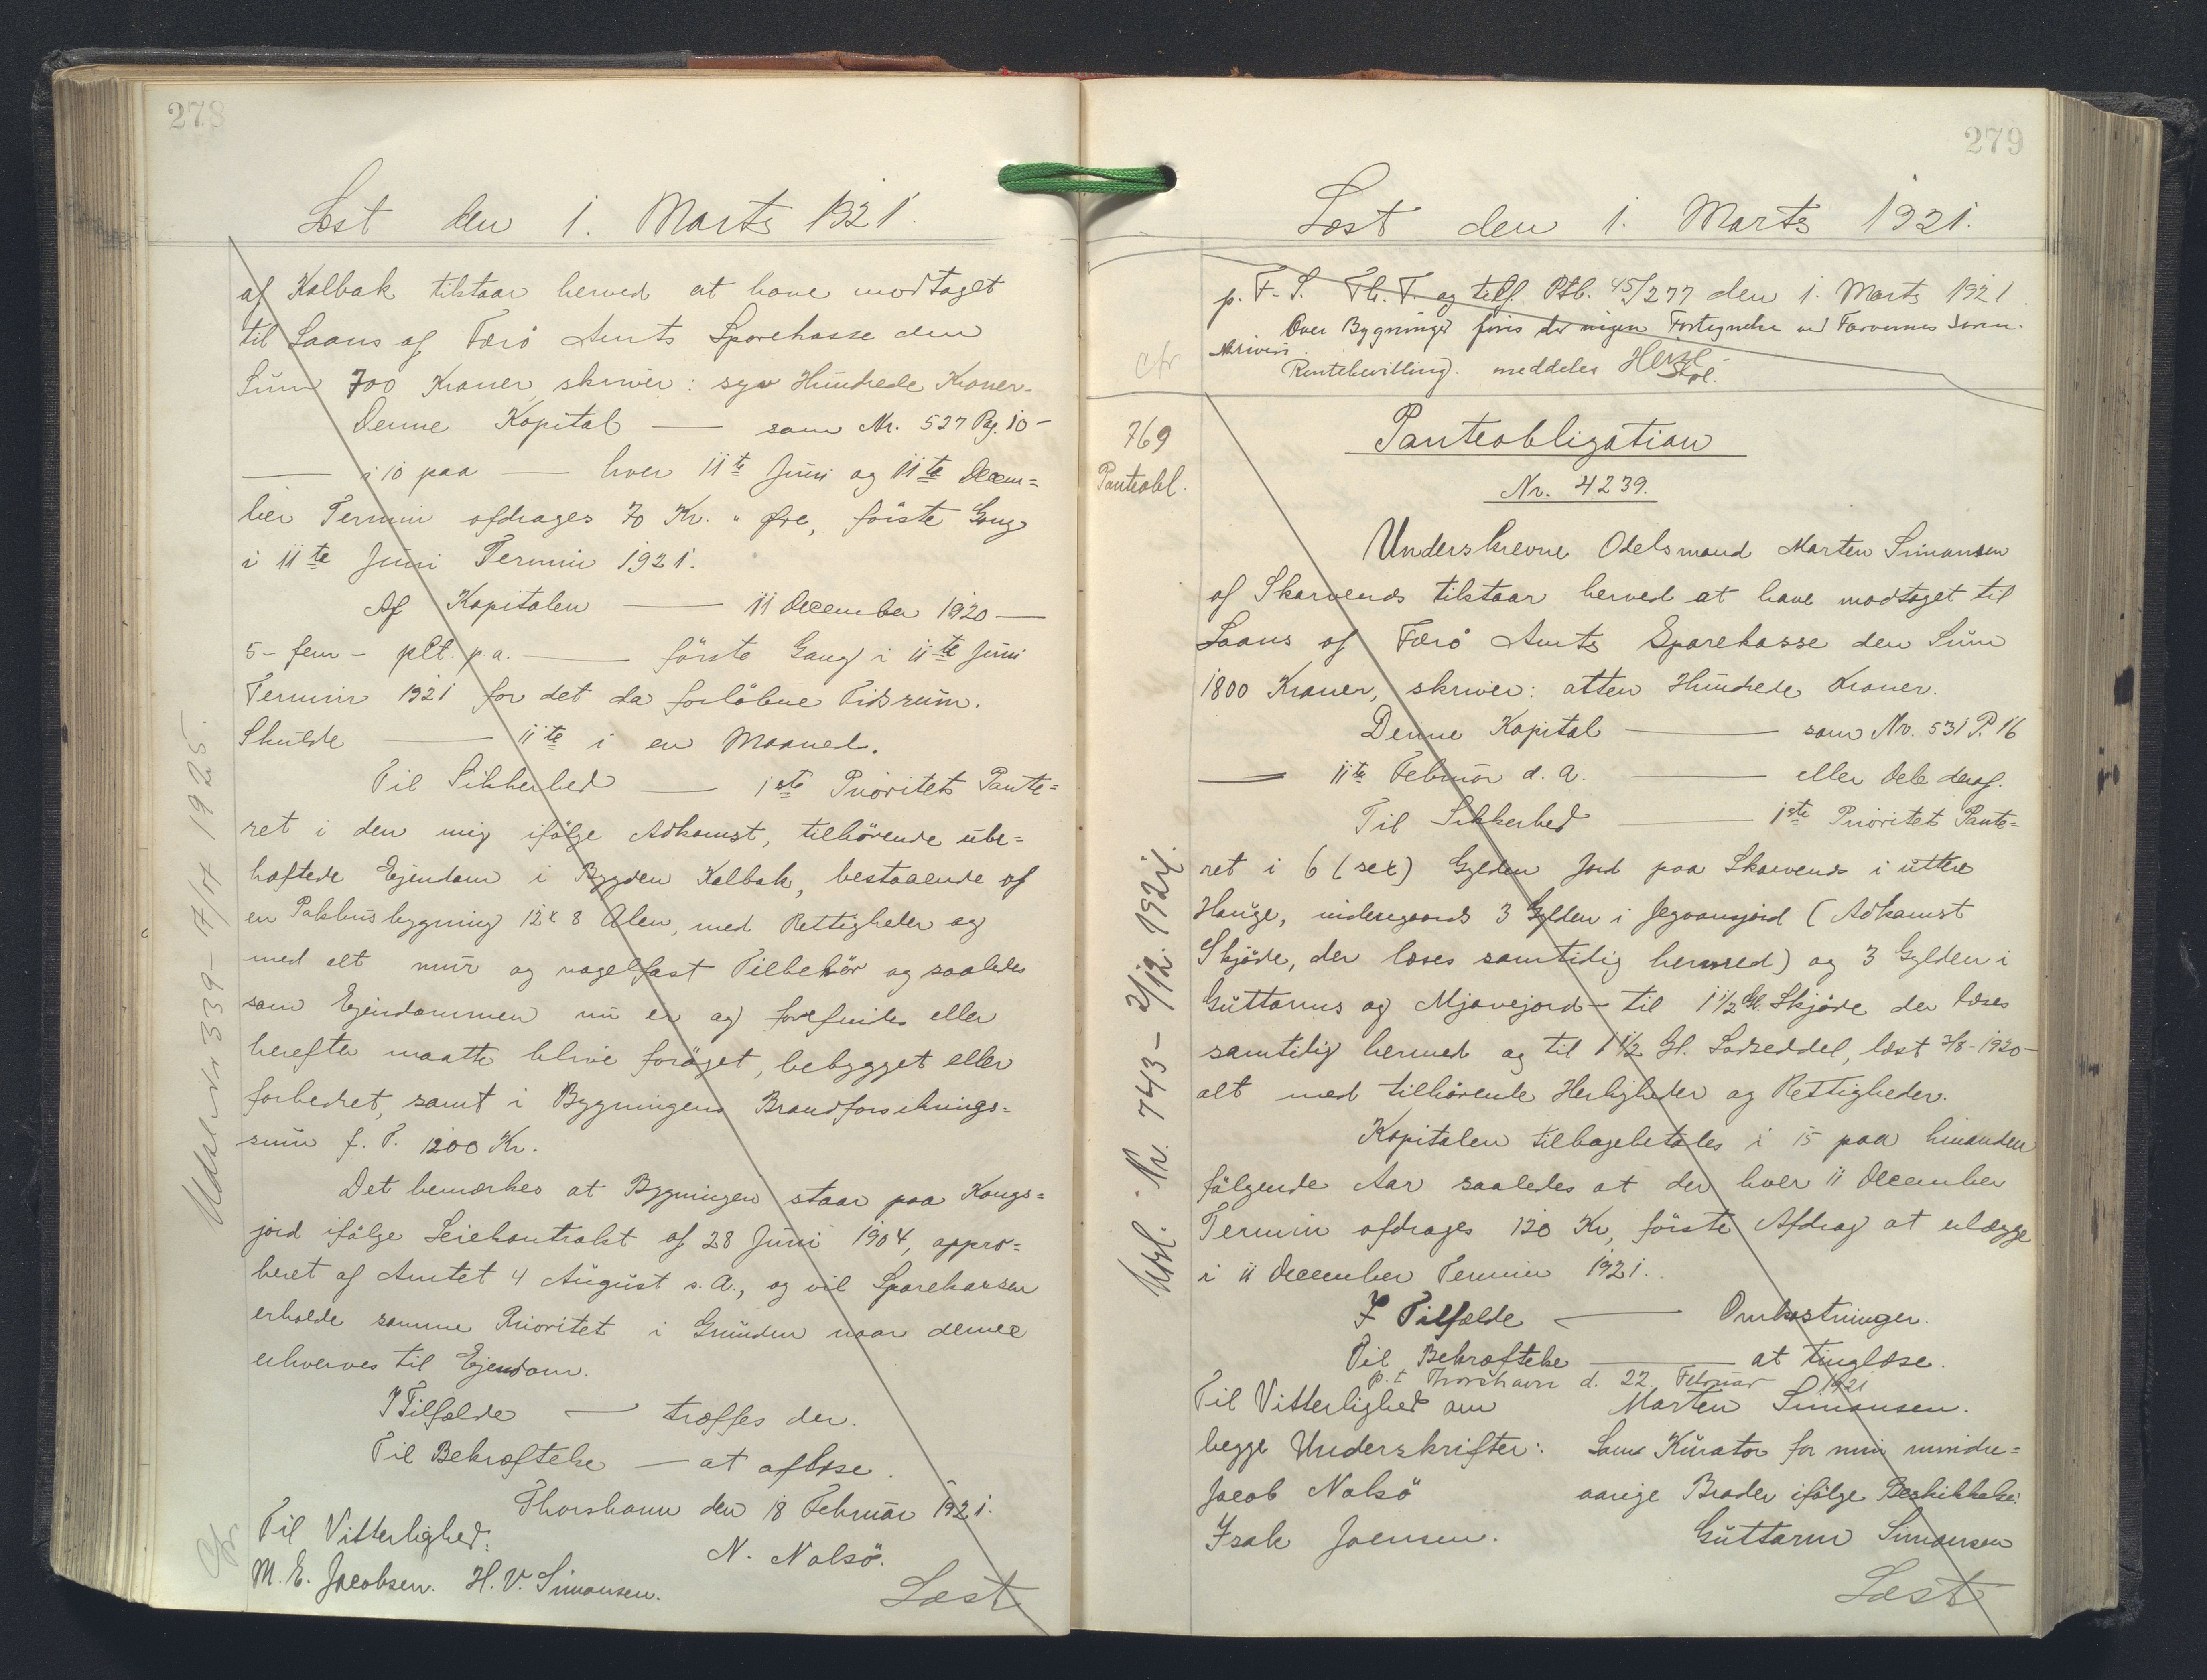 278
Læst den 1. Marts 1921.
af Kalbak tilstaar herved at have modtaget
til Laans af Færø Amts Sparekasse den
Sum 700 Kroner, skriver: syv Hundrede Kroner.
Denne Kapital — som Nr. 527 Pag. 10 —
— i 10 paa — hver 11te Juni og 11te Decem=
ber Termin afdrages 70 Kr. " Øre, første Gang
i 11te Juni Termin 1921.
Af Kapitalen — 11 December 1920 —
5 - fem - pCt. p.a. — første Gang i 11te Juni
Termin 1921 for det da forløbne Tidsrum.
Skulde — 11te i en Maaned.
Til Sikkerhed — 1ste Prioritets Pante=
ret i den mig ifølge Adkomst, tilhørende ube=
hæftede Ejendom i Bygden Kalbak, bestaaende af
en Pakhusbygning 12 x 8 Alen, med Rettigheder og
med alt mur og nagelfast Tilbehør og saaledes
som Ejendommen nu er og forefindes eller
herefter maatte blive forøget, bebygget eller
forbedret, samt i Bygningens Brandforsikrings=
sum f. T. 1200 Kr.
Det bemærkes at Bygningen staar paa Kongs=
jord ifølge Leiekontrakt af 28 Juni 1904, appro=
beret af Amtet 4 August s. A., og vil Sparekassen
erholde samme Prioritet i Grunden naar denne
erhverves til Ejendom.
I Tilfælde — træffes der.
Til Bekræftelse — at aflæse.
Thorshavn den 18 Februar 1921.
Til Vitterlighed:
N. Nolsö.
M. E. Jacobsen. H. V. Simonsen.
Læst
Cfr.
Udsl. Nr 339 - 17/04 1925.
279
Læst den 1. Marts 1921.
p. F. S. Th. T. og tilf. Ptb. 45/277 den 1. Marts 1921.
Over Bygninger føres der ingen Fortegnelse ved Færøernes Soren-
skriveri.
Rentebevilling. meddeles
cfr
769
Panteobl.
Panteobligation
Nr. 4239.
Underskrevne Odelsmand Morten Simonsen
af Skarvenes tilstaar herved at have modtaget til
Laans af Færø Amts Sparekasse den Sum
1800 Kroner, skriver: atten Hundrede Kroner.
Denne Kapital — som Nr. 531 P. 16
— 11te Februar d. A. — eller Dele deraf.
Til Sikkerhed — 1ste Prioritet Pante=
ret i 6 (sex) Gylden Jord paa Skarvenes i uttere
Hauge, nideregaards 3 Gylden i Jegvansjord (Adkomst
Skjøde, der læses samtidig hermed) og 3 Gylden i
Guttorms og Mjavejord - til 1 1/2 Gl. Skjøde der læses
samtidig hermed og til 1 1/2 Gl. Lodseddel, læst 3/8 - 1920 -
alt med tilhørende Herligheder og Rettigheder.
Kapitalen tilbagebetales i 15 paa hinanden
følgende Aar saaledes at der hver 11 December
Termin afdrages 120 Kr, første Afdrag at erlægge
i 11 December Termin 1921.
I Tilfælde — Omkostninger.
Til Bekræftelse — at tinglæse.
p.t Thorshavn d. 22 Februar 1921
Til Vitterlighed om Morten Simonsen.
begge Underskrifter: Som Kurator for min mindre=
Jacob Nolsö aarige Broder ifølge Beskikkelse:
Isak Joensen. Guttorm Simonsen
Læst
Udsl. Nr. 743 - 2/12 1924.